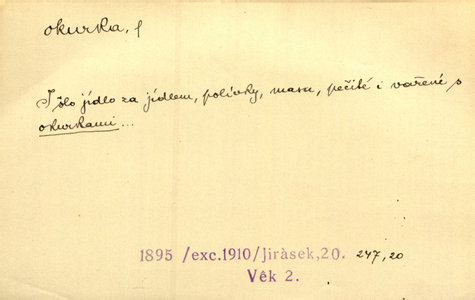 okurka, f
I šlo jídlo za jídlem, polívky, masa, pečité i vařené s
okurkami...
1895 /exc.1910/Jiràsek,20. 247,20
Vêk 2.